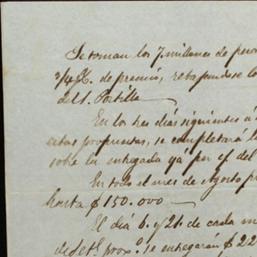 Se toman los 7. millones de pesos
3/4 %. de premio, rebajandose lo
del S. Portilla
En los tres dias siguientes á
estas propuestas, se completará l
sobre la entregada yá por cf. del
En todo el mes de Agosto p
hasta $ 150.000
El dia 6. y 21. de cada m
se entregaran $ 22